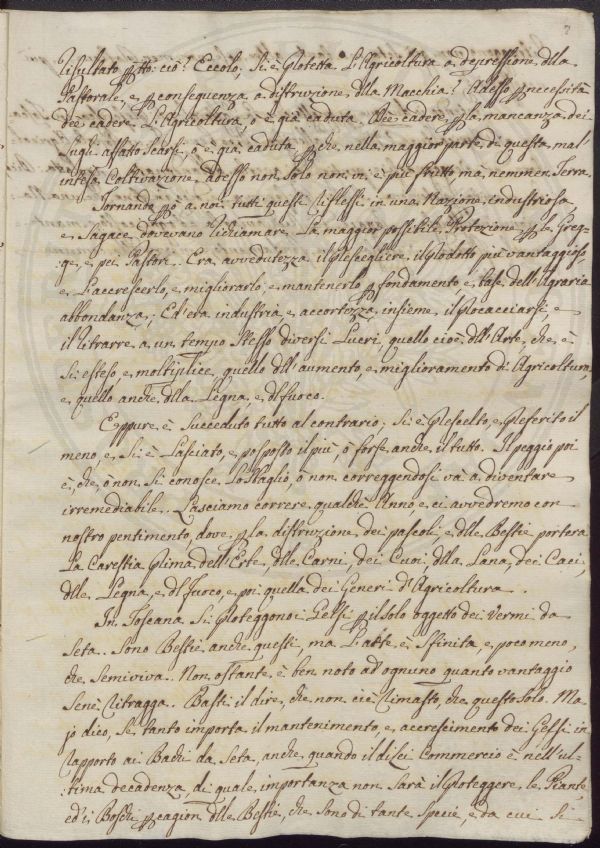 risultato p tto ciò? Eccolo. Si è Protetta L'Agricoltura a depressione dlla
Pastorale, e p conseguenza a distruzione dlla Macchia? Adesso p necessità
dee cadere L'Agricoltura, o è già caduta. Dee cadere p la mancanza dei
Sughi affatto scarsi, o è già caduta, p che nella maggior parte di questa mal'
intesa Coltivazione adesso non solo non vi è più frutto mà nemmen Terra.
Tornando p ò a noi tutti questi riflessi in una Nazione industriosa,
e Sagace dovevano richiamare La maggior possibile Protezione p le Greg-
ge, e pei Pastori. Era avvedutezza il Prescegliere il Prodotto più vantaggioso
e L'accrescerlo, e migliorarlo, e mantenerlo p fondamento e base dell'Agraria
abbondanza; Ed era industria e accortezza insieme il procacciarsi e
il ritrarre a un tempo stesso diversi Lucri, quello cioè dll'Arte, che è
Sì esteso, e moltiplice, quello dll'aumento, e miglioramento di Agricoltura,
e quello anche dlla Legna, e dl fuoco.
Eppure è Succeduto tutto al contrario; Si è Prescelto, e Preferito il
meno, e Si è Lasciato, e posposto il più, ò forse anche il tutto. Il peggio poi
è, che, ò non Si conosce Lo sbaglio, ò non correggendosi và a diventare
irremediabile. Lasciamo correre qualche Anno e ci avvedremo con
nostro pentimento, dove p la distruzione dei pascoli, e dlle Bestie porterà
La Carestia Prima dell'Erbe, dlle Carni, dei Cuoi, dlla Lana, dei Caci,
dlle Legna, e dl Fuoco, e poi quella dei Generi d'Agricoltura.
In Toscana Si Proteggono i Gelsi p il solo oggetto dei Vermi da
Seta. Sono Bestie anche questi, ma L'Arte è Sfinita, e poco meno,
che Semiviva. Non ostante è ben noto ad ognuno quanto vantaggio
Sene ritragga. Basti il dire, che non ci è rimasto, che questo Solo. Ma
jo dico, Se tanto importa il mantenimento, e accrescimento dei Gelsi in
rapporto ai Bachi da Seta, anche quando il dilei Commercio è nell'ul-
tima decadenza, di quale importanza non Sarà il Proteggere le Piante,
ed i Boschi p cagion dlle Bestie, che sono di tante Specie, e da cui Si